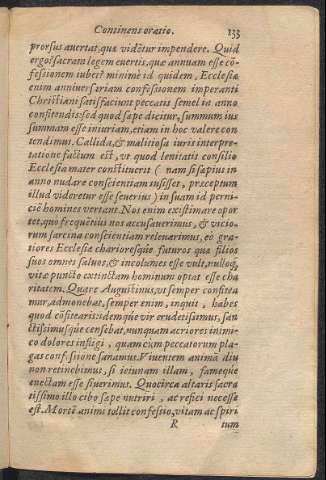 Continens oratio. 133
prorsus auertat, quæ vidētur impendere. Quid
ergo? sacram legem euertis, quæ annuam esse cō-
fessionem iubet? minimè id quidem, Ecclesiæ
enim anniuersariam confessionem imperanti
Christiani satisfaciunt peccatis semel in anno
confitendis: sed quod sæpe dicitur, summum ius
summam esse iniuriam, etiam in hoc valere con
tendimus. Callida, & malitiosa iuris interpre-
tatione factum est, vt quod lenitatis consilio
Ecclesia mater constituerit ( nam si sæpius in
anno nudare conscientiam iusisset, præceptum
illud videretur esse seuerius ) in suam id perni-
ciē homines vertant. Nos enim existimare opor
tet, quo frequētius nos accusauerimus, & vicio-
rum sarcina conscientiam releuarimus, eò gra-
tiores Ecclesiæ charioresque futuros quæ filios
suos omneis saluos, & incolumes esse vult, nullosq́;
vitæ puncto extinctam hominum optat esse cha
ritatem. Quare Augustinus, vt semper confitea
mur, admonebat, semper enim, inquit, habes
quod cōfitearis: idemque vir eruditissimus, san
ctissimusque censebat, nunquam acriores inimi-
co dolores infligi, quam cum peccatorum pla-
gas confessione sanamus. Viuentem animā diu
non retinebimus, si ieiunam illam, fameque
enectam esse siuerimus. Quocirca altaris sacra
tissimo illo cibo sæpe nutriri, ac refici necesse
est. Mortē animi tollit confessio, vitam ac spiri
R tum